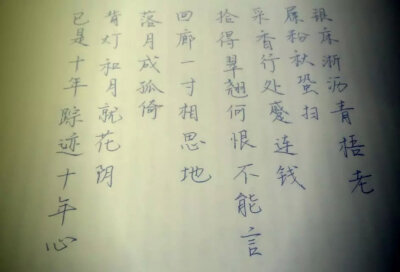 银床淅沥青梧老
屧粉秋蛩扫
采香行处蹙连钱
拾得翠翘何恨不能言
回廊一寸相思地
落月成孤倚
背灯和月就花阴
已是十年踪迹十年心